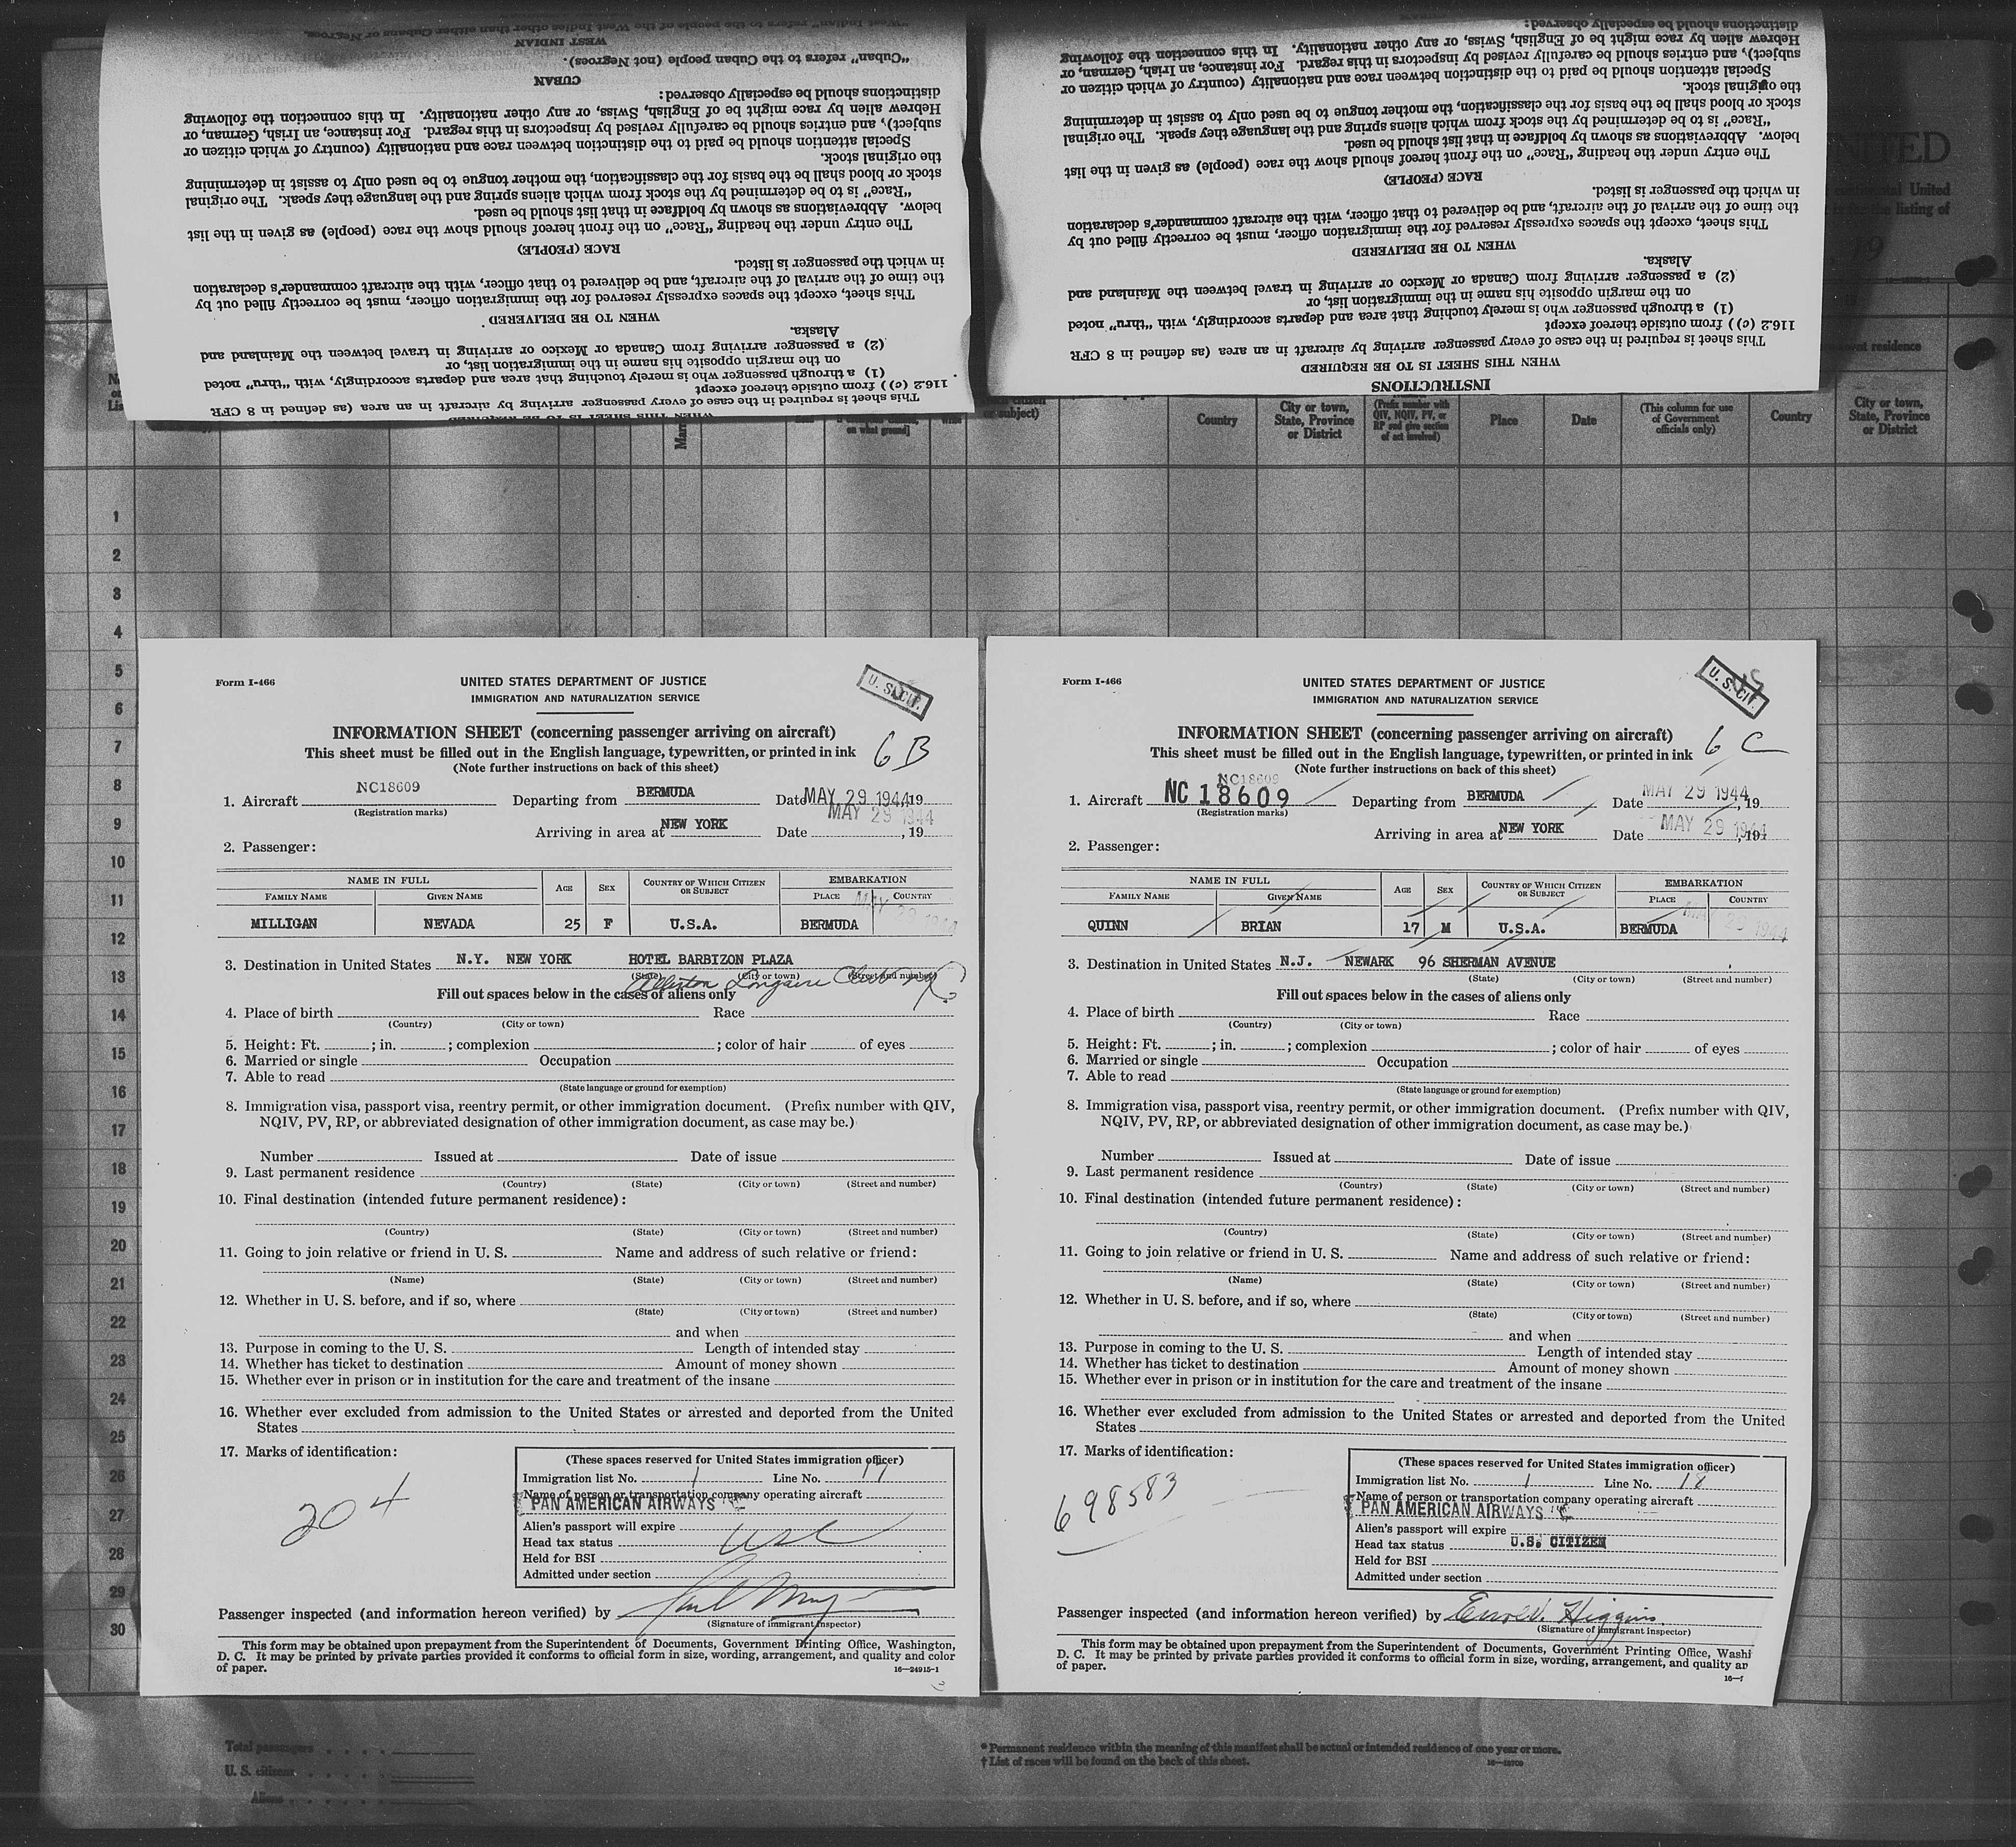 "West Indian" refers to the people of the West Indies other than either Cubans or Negroes.
WEST INDIAN
"Cuban" refers to the Cuban people (not Negroes).
CUBAN
distinctions should be especially observed:
Hebrew alien by race might be of English, Swiss, or any other nationality. In this connection the following
subject), and entries should be carefully revised by inspectors in this regard. For instance, an Irish, German, or
Special attention should be paid to the distinction between race and nationality (country of which citizen or
the original stock.
stock or blood shall be the basis for the classification, the mother tongue to be used only to assist in determining
"Race" is to be determined by the stock from which aliens spring and the language they speak. The original
below. Abbreviations as shown by boldface in that list should be used.
The entry under the heading "Race" on the front hereof should show the race (people) as given in the list
RACE (PEOPLE)
in which the passenger is listed.
the time of the arrival of the aircraft, and be delivered to that officer, with the aircraft commander's declaration
This sheet, except the spaces expressly reserved for the immigration officer, must be correctly filled out by
WHEN TO BE DELIVERED
Alaska.
(2) a passenger arriving from Canada or Mexico or arriving in travel between the Mainland and
on the margin opposite his name in the immigration list, or
(1) a through passenger who is merely touching that area and departs accordingly, with "thru" noted
116.2 (c) ) from outside thereof except
This sheet is required in the case of every passenger arriving by aircraft in an area (as defined in 8 CFR
WHEN THIS SHEET IS TO BE REQUIRED
distinctions should be especially observed:
Hebrew alien by race might be of English, Swiss, or any other nationality. In this connection the following
subject), and entries should be carefully revised by inspectors in this regard. For instance, an Irish, German, or
Special attention should be paid to the distinction between race and nationality (country of which citizen or
the original stock.
stock or blood shall be the basis for the classification, the mother tongue to be used only to assist in determining
"Race" is to be determined by the stock from which aliens spring and the language they speak. The original
below. Abbreviations as shown by boldface in that list should be used.
The entry under the heading "Race" on the front hereof should show the race (people) as given in the list
RACE (PEOPLE)
in which the passenger is listed.
the time of the arrival of the aircraft, and be delivered to that officer, with the aircraft commander's declaration
This sheet, except the spaces expressly reserved for the immigration officer, must be correctly filled out by
WHEN TO BE DELIVERED
Alaska.
(2) a passenger arriving from Canada or Mexico or arriving in travel between the Mainland and
on the margin opposite his name in the immigration list, or
(1) a through passenger who is merely touching that area and departs accordingly, with "thru" noted
116.2 (c) ) from outside thereof except
This sheet is required in the case of every passenger arriving by aircraft in an area (as defined in 8 CFR
WHEN THIS SHEET IS TO BE REQUIRED
INSTRUCTIONS
United
listing of
19
residence
or subject)
on what ground]
Country
City or town, State, Province or District
(Prefix number with QIV, NQIV, PV, or RP and give section of act involved)
Place
Date
(This column for use of Government officials only)
Country
City or town, State, Province or District
1
2
3
4
5
6
7
8
9
10
11
12
13
14
15
16
17
18
19
20
21
22
23
24
25
26
27
28
29
30
Form I-466
UNITED STATES DEPARTMENT OF JUSTICE
IMMIGRATION AND NATURALIZATION SERVICE
U. S. CIT.
INFORMATION SHEET (concerning passenger arriving on aircraft)
This sheet must be filled out in the English language, typewritten, or printed in ink
6 B
(Note further instructions on back of this sheet)
1. Aircraft NC18609 Departing from BERMUDA Date MAY 29 1944, 19
(Registration marks)
Arriving in area at NEW YORK Date MAY 29 1944, 19
2. Passenger:
NAME IN FULL AGE SEX COUNTRY OF WHICH CITIZEN OR SUBJECT EMBARKATION
FAMILY NAME GIVEN NAME PLACE COUNTRY
MAY 29 1944
MILLIGAN NEVADA 25 F U.S.A. BERMUDA
3. Destination in United States N.Y. NEW YORK HOTEL BARBIZON PLAZA
(State) (City or town) (Street and number)
Fill out spaces below in the cases of aliens only
4. Place of birth Race
(Country) (City or town)
5. Height: Ft. ; in. ; complexion ; color of hair of eyes
6. Married or single Occupation
7. Able to read
(State language or ground for exemption)
8. Immigration visa, passport visa, reentry permit, or other immigration document. (Prefix number with QIV,
NQIV, PV, RP, or abbreviated designation of other immigration document, as case may be.)
Number Issued at Date of issue
9. Last permanent residence
(Country) (State) (City or town) (Street and number)
10. Final destination (intended future permanent residence):
(Country) (State) (City or town) (Street and number)
11. Going to join relative or friend in U. S. Name and address of such relative or friend:
(Name) (State) (City or town) (Street and number)
12. Whether in U. S. before, and if so, where
(State) (City or town) (Street and number)
and when
13. Purpose in coming to the U. S. Length of intended stay
14. Whether has ticket to destination Amount of money shown
15. Whether ever in prison or in institution for the care and treatment of the insane
16. Whether ever excluded from admission to the United States or arrested and deported from the United
States
17. Marks of identification:
204
(These spaces reserved for United States immigration officer)
Immigration list No. 1 Line No. 17
Name of person or transportation company operating aircraft
PAN AMERICAN AIRWAYS
Alien's passport will expire
Head tax status USC
Held for BSI
Admitted under section
Passenger inspected (and information hereon verified) by
(Signature of immigrant inspector)
This form may be obtained upon prepayment from the Superintendent of Documents, Government Printing Office, Washington,
D. C. It may be printed by private parties provided it conforms to official form in size, wording, arrangement, and quality and color
of paper.
16—24915-1
Form I-466
UNITED STATES DEPARTMENT OF JUSTICE
IMMIGRATION AND NATURALIZATION SERVICE
U. S. CIT.
INFORMATION SHEET (concerning passenger arriving on aircraft)
This sheet must be filled out in the English language, typewritten, or printed in ink
6 C
(Note further instructions on back of this sheet)
NC18609
1. Aircraft NC 18609 Departing from BERMUDA Date MAY 29 1944, 19
(Registration marks)
Arriving in area at NEW YORK Date MAY 29 1944, 19
2. Passenger:
NAME IN FULL AGE SEX COUNTRY OF WHICH CITIZEN OR SUBJECT EMBARKATION
FAMILY NAME GIVEN NAME PLACE COUNTRY
MAY 29 1944
QUINN BRIAN 17 M U.S.A. BERMUDA
3. Destination in United States N.J. NEWARK 96 SHERMAN AVENUE
(State) (City or town) (Street and number)
Fill out spaces below in the cases of aliens only
4. Place of birth Race
(Country) (City or town)
5. Height: Ft. ; in. ; complexion ; color of hair of eyes
6. Married or single Occupation
7. Able to read
(State language or ground for exemption)
8. Immigration visa, passport visa, reentry permit, or other immigration document. (Prefix number with QIV,
NQIV, PV, RP, or abbreviated designation of other immigration document, as case may be.)
Number Issued at Date of issue
9. Last permanent residence
(Country) (State) (City or town) (Street and number)
10. Final destination (intended future permanent residence):
(Country) (State) (City or town) (Street and number)
11. Going to join relative or friend in U. S. Name and address of such relative or friend:
(Name) (State) (City or town) (Street and number)
12. Whether in U. S. before, and if so, where
(State) (City or town) (Street and number)
and when
13. Purpose in coming to the U. S. Length of intended stay
14. Whether has ticket to destination Amount of money shown
15. Whether ever in prison or in institution for the care and treatment of the insane
16. Whether ever excluded from admission to the United States or arrested and deported from the United
States
17. Marks of identification:
698583
(These spaces reserved for United States immigration officer)
Immigration list No. 1 Line No. 18
Name of person or transportation company operating aircraft
PAN AMERICAN AIRWAYS
Alien's passport will expire
Head tax status U.S. CITIZEN
Held for BSI
Admitted under section
Passenger inspected (and information hereon verified) by Higgins
(Signature of immigrant inspector)
This form may be obtained upon prepayment from the Superintendent of Documents, Government Printing Office, Washi
D. C. It may be printed by private parties provided it conforms to official form in size, wording, arrangement, and quality an
of paper.
Total passengers
U. S. citizens
Aliens
* Permanent residence within the meaning of this manifest shall be actual or intended residence of one year or more.
† List of races will be found on the back of this sheet.